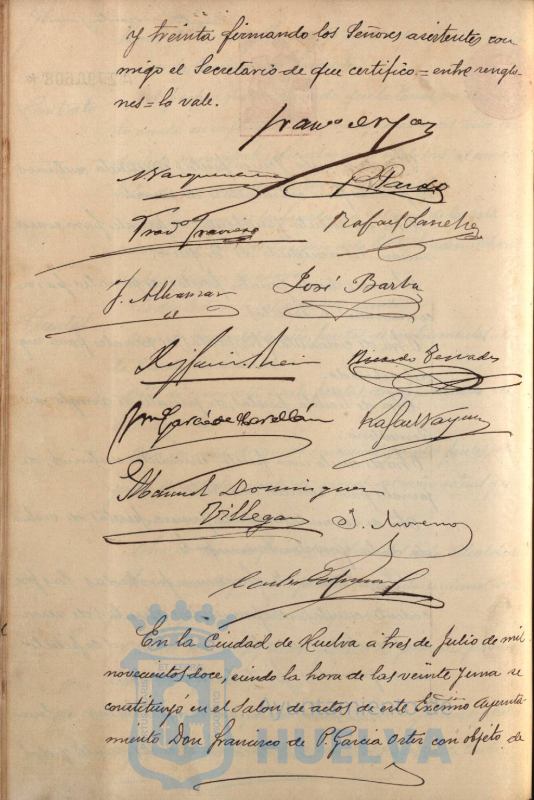 y treinta firmando los Señores asistentes con
migo el Secretario de que certifico.=entre renglo
nes=lo vale.
P. Pardo
Rafael Sanchez
J. Alcanzar
José Barba
Ricardo Terrades
Rafael Vazquez
Manuel Dominguez
Villegas
J. Moreno
En la Ciudad de Huelva a tres de Julio de mil
novecientos doce, siendo la hora de las veinte y una se
constituyó en el Salon de actos de este Excmo Ayunta-
miento Don Francisco de P. Garcia Ortiz con objeto de
HUELVA